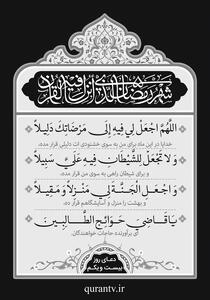 شهر رمضان الذی انزل فیه القرآن
اللَّهُمَّ اجْعَلْ لِي فِيهِ إِلَى مَرْضَاتِكَ دَلِيلاً
خدایا در این ماه برای من به سوی خشنودی ات دلیلی قرار ده،
وَ لَا تَجْعَلْ لِلشَّيْطَانِ فِيهِ عَلَيَّ سَبِيلاً
و برای شیطان راهی به سوی من قرار مده،
وَ اجْعَلِ الْجَنَّةَ لِي مَنْزِلاً وَ مَقِيلاً
و بهشت را منزل و آسایشگاهم قرار ده،
يَا قَاضِيَ حَوَائِجِ الطَّالِبِينَ
ای برآورنده حاجات خواهندگان.
دعای روز
بیست و یکم
qurantv.ir